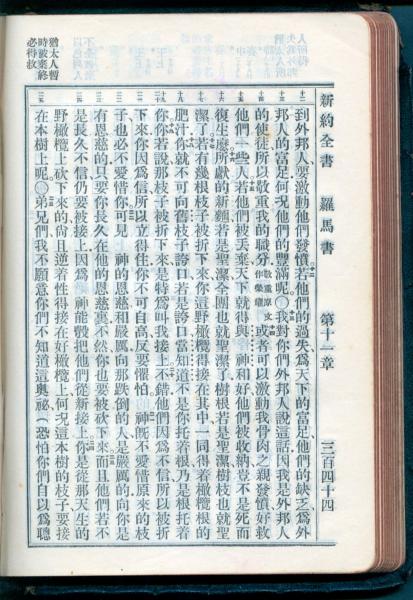 新約全書 羅馬書 第十一章 三百四十四
到外邦人、要激動他們發憤若他們的過失、爲天下的富足、他們的缺乏、爲外
邦人的富足、何況他們的豐滿呢○我對你們外邦人說這話、因我是外邦人
的使徒、所以敬重我的職分、敬重原文作榮耀或者可以激動我骨肉之親發憤、好救
他們一些人、若他們被丟棄、天下就得與神和好、他們被收納、豈不是死而
復生麼、所獻的新麵、若是聖潔、全團也就聖潔了、樹根若是聖潔、樹枝也就聖
潔了、若有幾根枝子被折下來、你這野橄欖得接在其中、一同得着橄欖根的
肥汁、你就不可向舊枝子誇口、若是誇口、當知道不是你托着根、乃是根托着
你、你若說、那枝子被折下來、是特爲叫我接上、不錯、他們因爲不信、所以被折
下來、你因爲信、所以立得住、你不可自高、反要懼怕、神既不愛惜原來的枝
子、也必不愛惜你、可見神的恩慈和嚴厲、向那跌倒的人、是嚴厲的、向你是
有恩慈的、只要你長久在他的恩慈裏、不然、你也要被砍下來、而且他們若不
是長久不信、仍要被接上、因爲神能彀把他們從新接上、你是從那天生的
野橄欖上砍下來的、尚且逆着性得接在好橄欖上、何況這本樹的枝子、要接
在本樹上呢○弟兄們、我不願意你們不知道這奧祕、(恐怕你們自以爲聰
猶太人暫
時被棄終
必得救